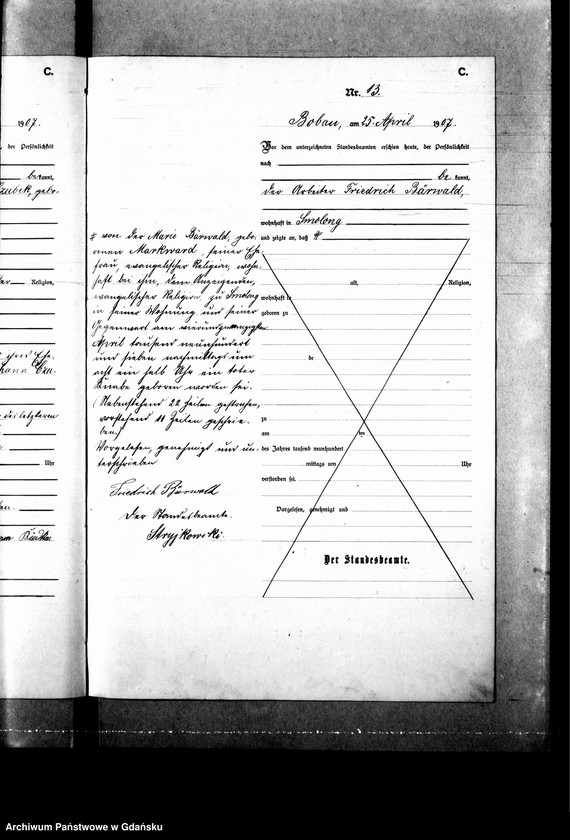 C.
1907.
der Persönlichkeit
be kannt,
gebo-
Religion,
des letzteren
Uhr
C.
Nr. 13.
Bobau, am 25. April 1907.
Vor dem unterzeichneten Standesbeamten erschien heute, der Persönlichkeit
nach
be kannt,
der Arbeiter Friedrich Bärwald,
wohnhaft in Smolong
und zeigte an, daß #
alt, Religion,
wohnhaft in
geboren zu
de
zu
am ten
des Jahres tausend neunhundert
mittags um Uhr
verstorben sei.
Vorgelesen, genehmigt und
Der Standesbeamte.
# von der Marie Bärwald, gebo-
renen Markward, seiner Ehe-
frau, evangelischer Religion, wohn-
haft bei ihm, dem Anzeigenden,
evangelischer Religion, zu Smolong
in seiner Wohnung und seiner
Gegenwart am vierundzwanzigsten
April tausend neunhundert
und sieben nachmittags um
acht ein halb Uhr ein toter
Knabe geboren worden sei.
(Nebenstehend 22 Zeilen gestrichen,
vorstehend 11 Zeilen geschrie-
ben.)
Vorgelesen, genehmigt und un-
terschrieben
Friedrich Bärwald
Der Standesbeamte.
Stryjkowski.
Archiwum Państwowe w Gdańsku